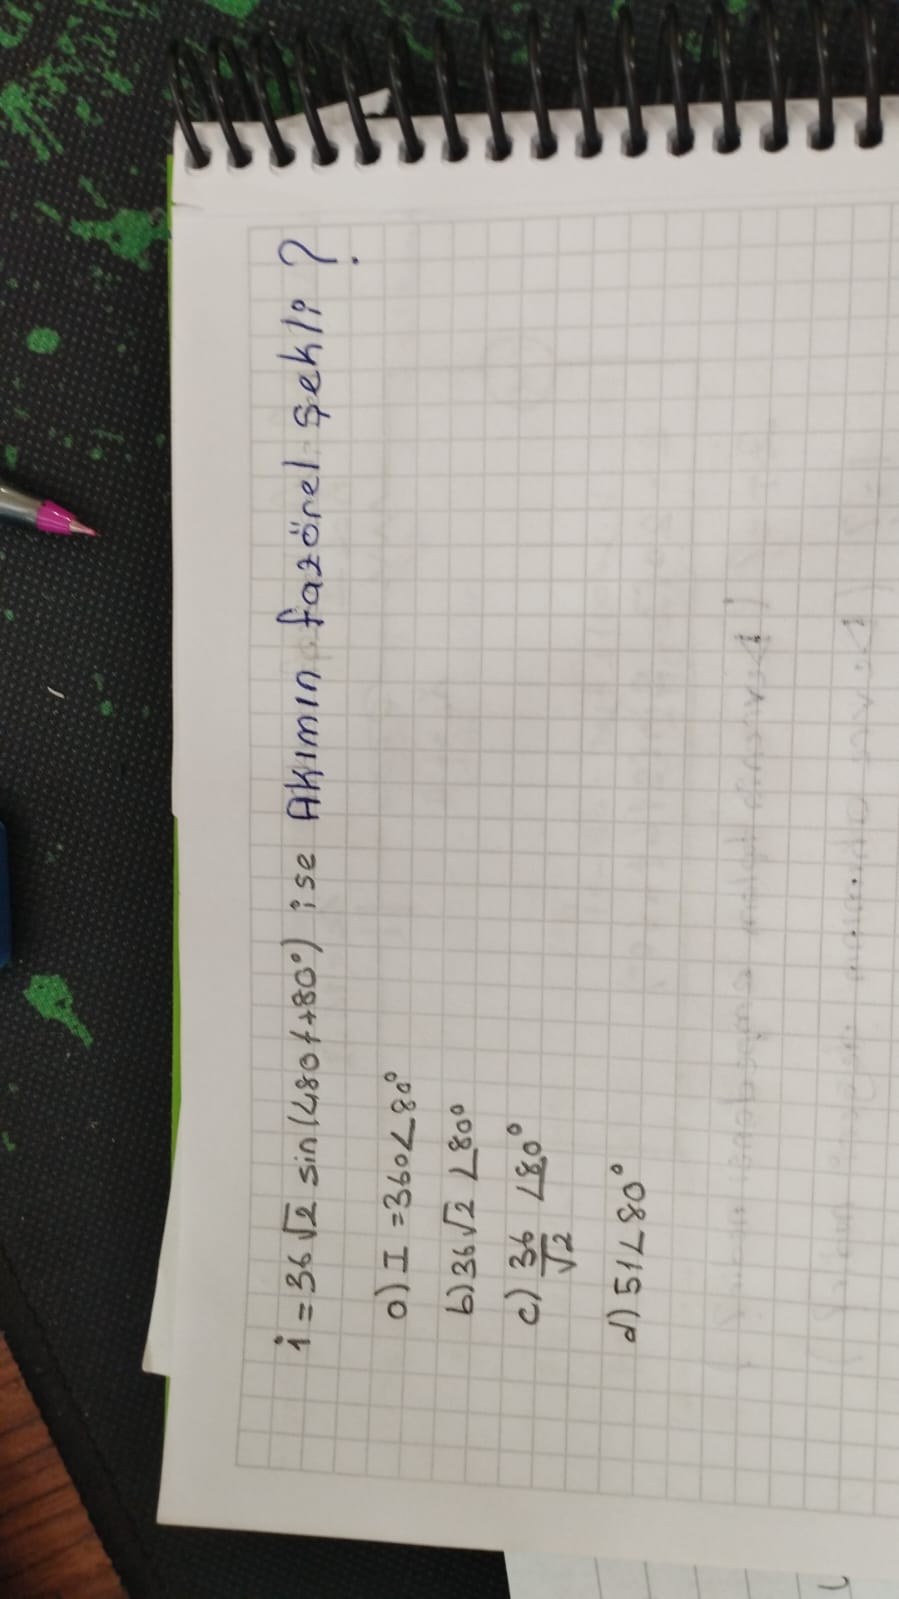 i = 36√2 sin(480t+80°) ise Akımın fazörel şekli ?
a) I = 360∠80°
b) 36√2 ∠80°
c) 36/√2 ∠80°
d) 51∠80°